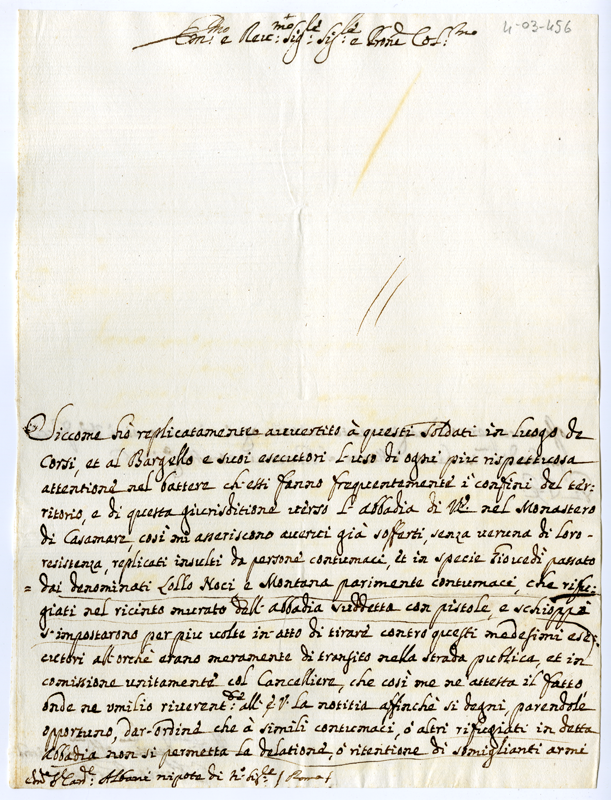 4-03-456
Em:mo e Rev:mo Sig:le Sig:le e Prone Col:mo
Siccome hò replicatamente avvertito à questi soldati in luogo de
Corsi, et al Bargello e suoi esecutori l'uso di ogni più rispettuosa
attentione nel battere ch'essi fanno frequentemente i confini del ter:
ritorio, e di questa giurisditione verso l'abbadia di V.E. nel Monastero
di Casamare così mi asseriscono averci già sofferti, senza veruna di loro
resistenza, replicati insulti da persone contumaci, et in specie Giovedì passato
dai denominati Lollo Noci e Montana parimente contumaci, che rifu:
giati nel ricinto murato dell'abbadia suddetta con pistole, e schioppi
s'impostarono per più volte in atto di tirare contro questi medesimi ese:
cutori all'orchè erano meramente di transito nella strada publica, et in
comissione unitamente col Cancelliere, che così me ne attesta il fatto
onde ne umilio riverent:te all'E.V. la notitia affinchè si degni, parendole
opportuno, dar ordine che à simili contumaci, ò altri rifugiati in detta
Abbadia non si permetta la delatione, ò ritentione di somiglianti armi
Em:o S:r Card:le Albani nipote di N:o Sig:re (Roma)